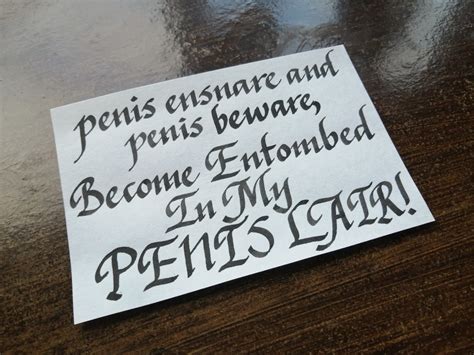 penis ensnare and
penis beware,
Become Entombed
In My
PENIS LAIR!